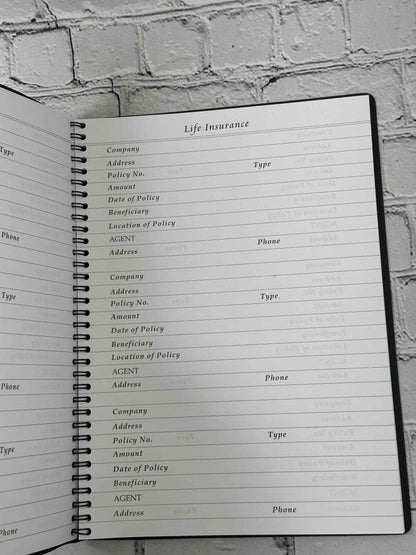 Type
Phone
Type
Phone
Type
Phone
Life Insurance
Company
Address
Policy No. Type
Amount
Date of Policy
Beneficiary
Location of Policy
AGENT Phone
Address
Company
Address
Policy No. Type
Amount
Date of Policy
Beneficiary
Location of Policy
AGENT
Address Phone
Company
Address
Policy No. Type
Amount
Date of Policy
Beneficiary
AGENT
Address Phone